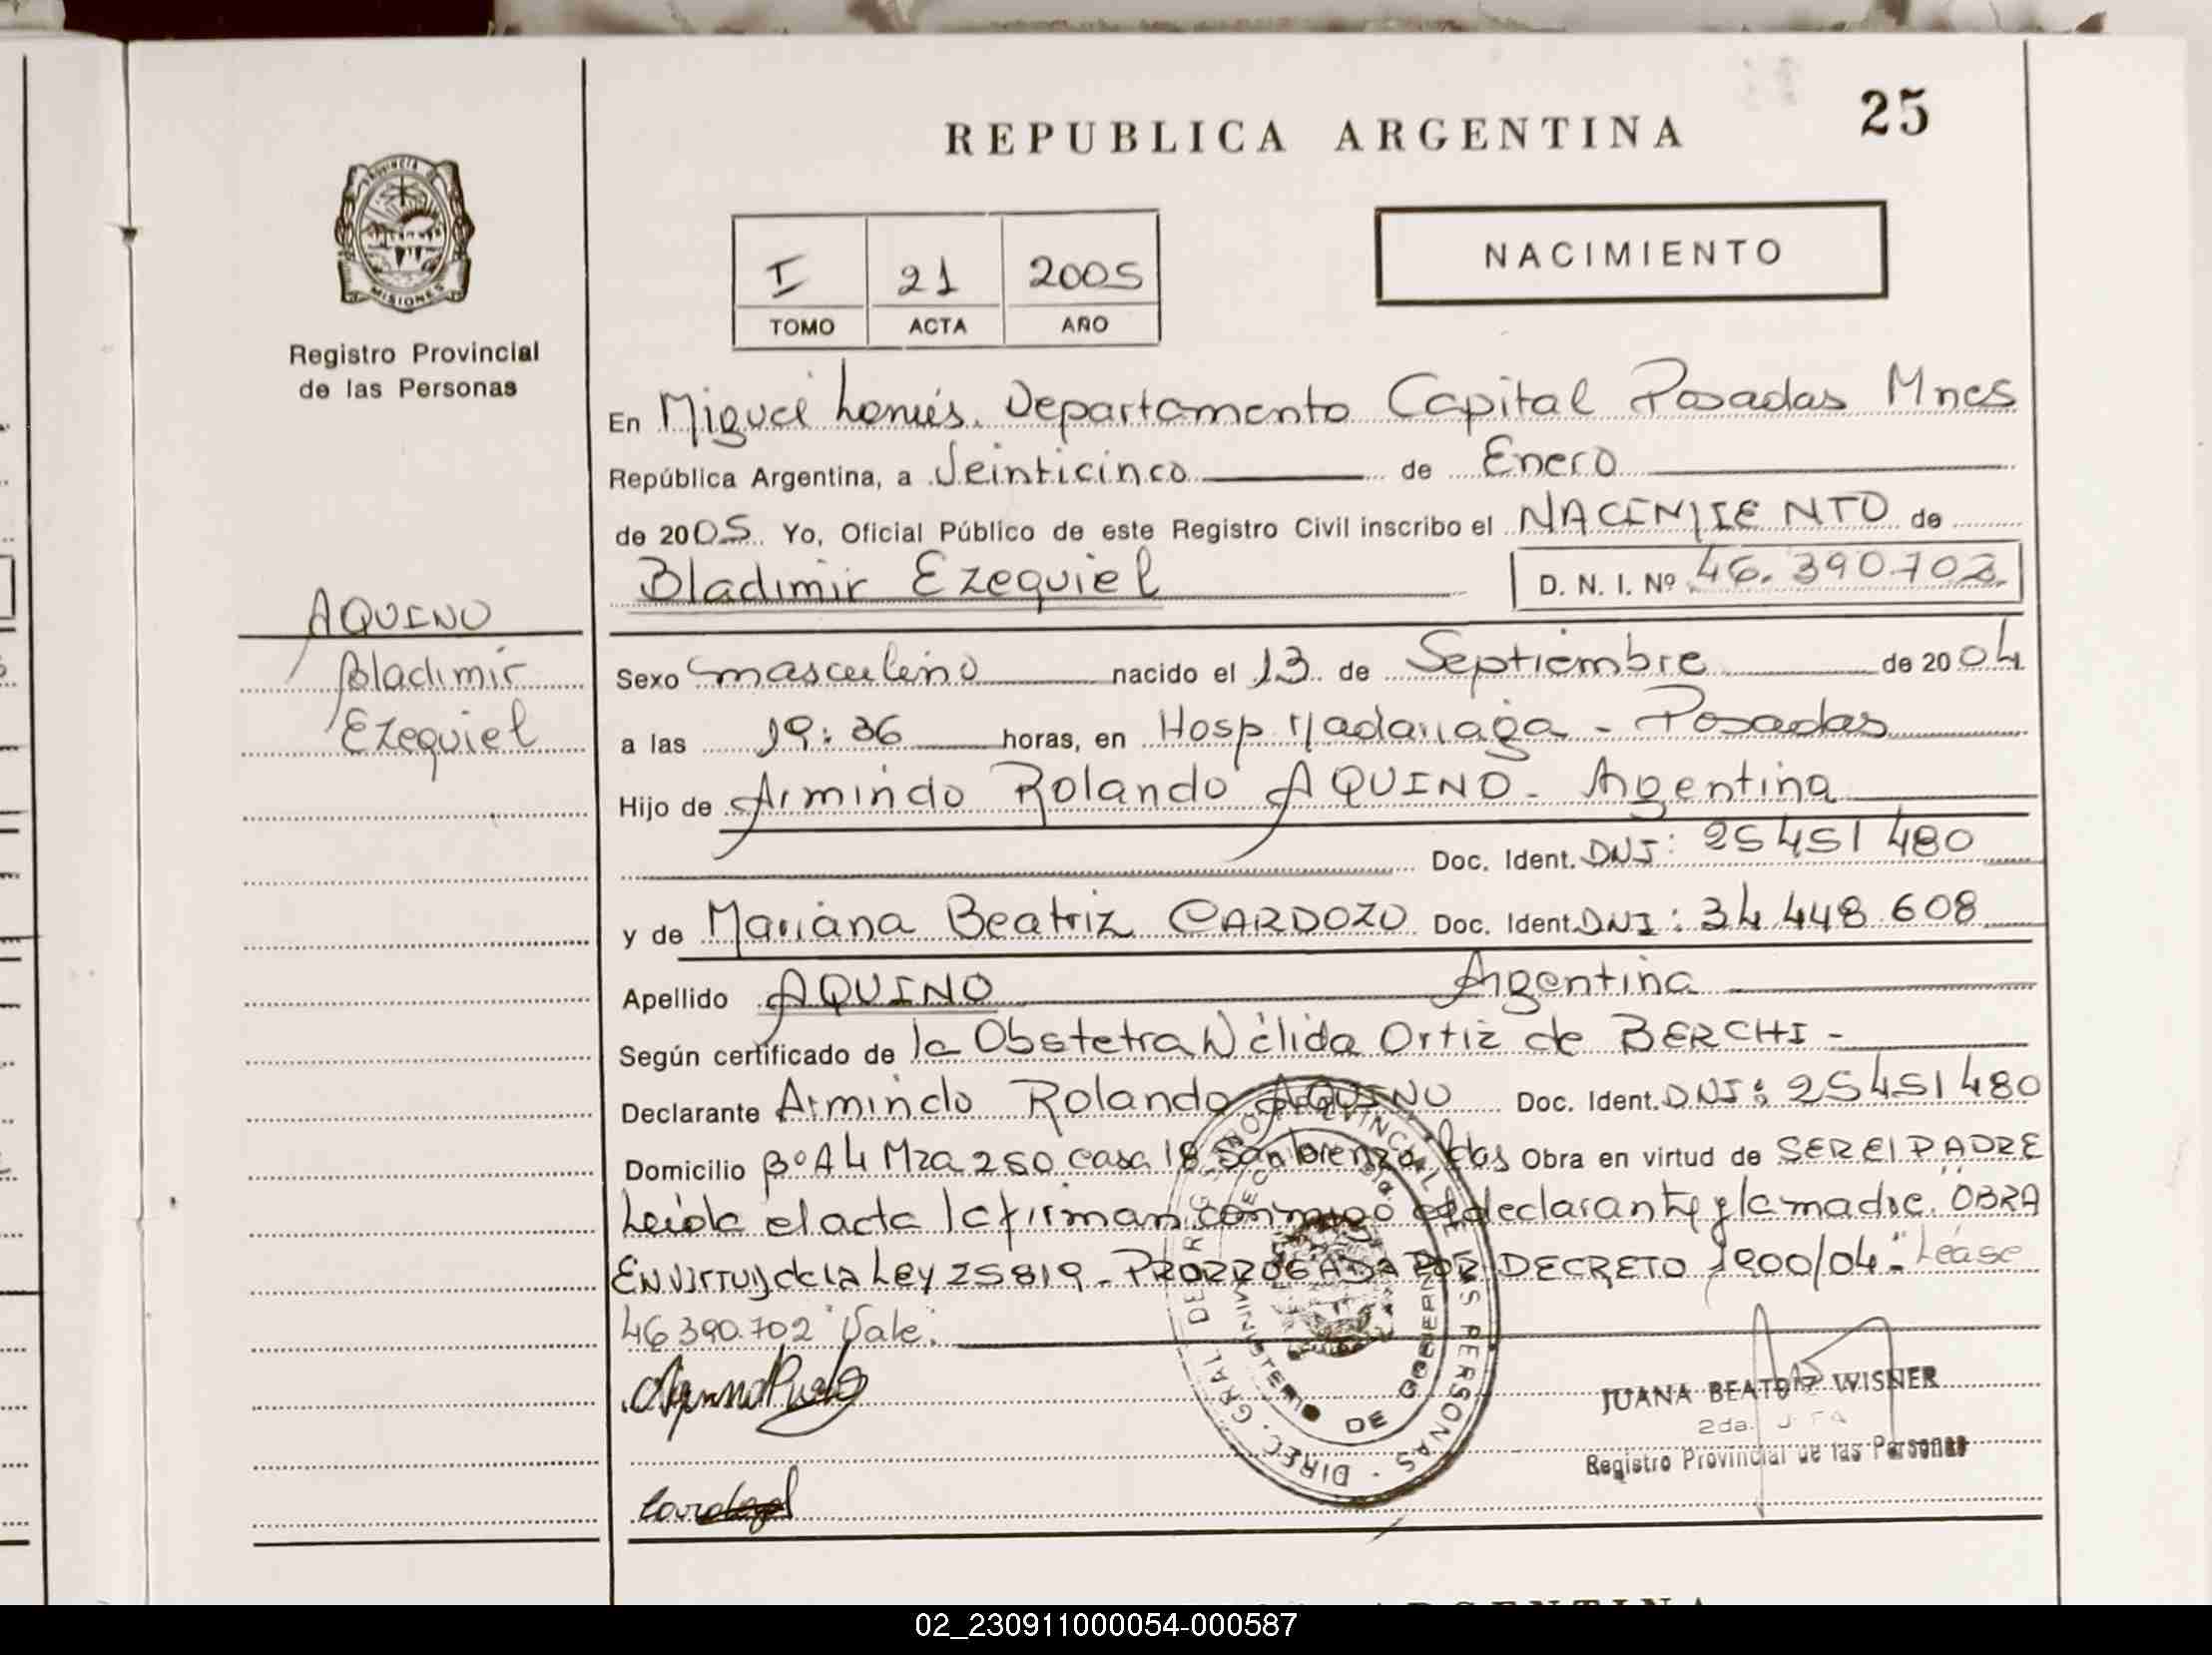 REPUBLICA ARGENTINA
25
PROVINCIA DE
MISIONES
Registro Provincial
de las Personas
NACIMIENTO
I 21 2005
TOMO ACTA AÑO
En Miguel Lanús. Departamento Capital Posadas Mnes
República Argentina, a Veinticinco de Enero
de 2005 Yo, Oficial Público de este Registro Civil inscribo el NACIMIENTO de
Bladimir Ezequiel D. N. I. Nº 46.390.702.
AQUINO
Bladimir
Ezequiel
Sexo masculino nacido el 13 de Septiembre de 2004
a las 19:36 horas, en Hosp Madariaga - Posadas
Hijo de Armindo Rolando AQUINO - Argentina
Doc. Ident. DNI: 25451480
y de Mariana Beatriz CARDOZO Doc. Ident. DNI: 34.448.608
Apellido AQUINO Argentina
Según certificado de la Obstetra Nélida Ortiz de BERCHI -
Declarante Armindo Rolando AQUINO Doc. Ident. DNI: 25451480
Domicilio Bº A4 Mza 250 casa 18 San Lorenzo Pdas Obra en virtud de SER El PADRE
Leída el acta la firman conmigo el declarante y la madre. OBRA
EN VIRTUD de la Ley 25819 - PRORROGADA POR DECRETO 1900/04 - "Léase
46.390.702" Vale.
DIREC. GRAL. DE REGISTRO PROVINCIAL DE LAS PERSONAS
MINISTERIO DE GOBIERNO
JUANA BEATRIZ WISNER
2da.
Registro Provincial de las Personas
02_230911000054-000587